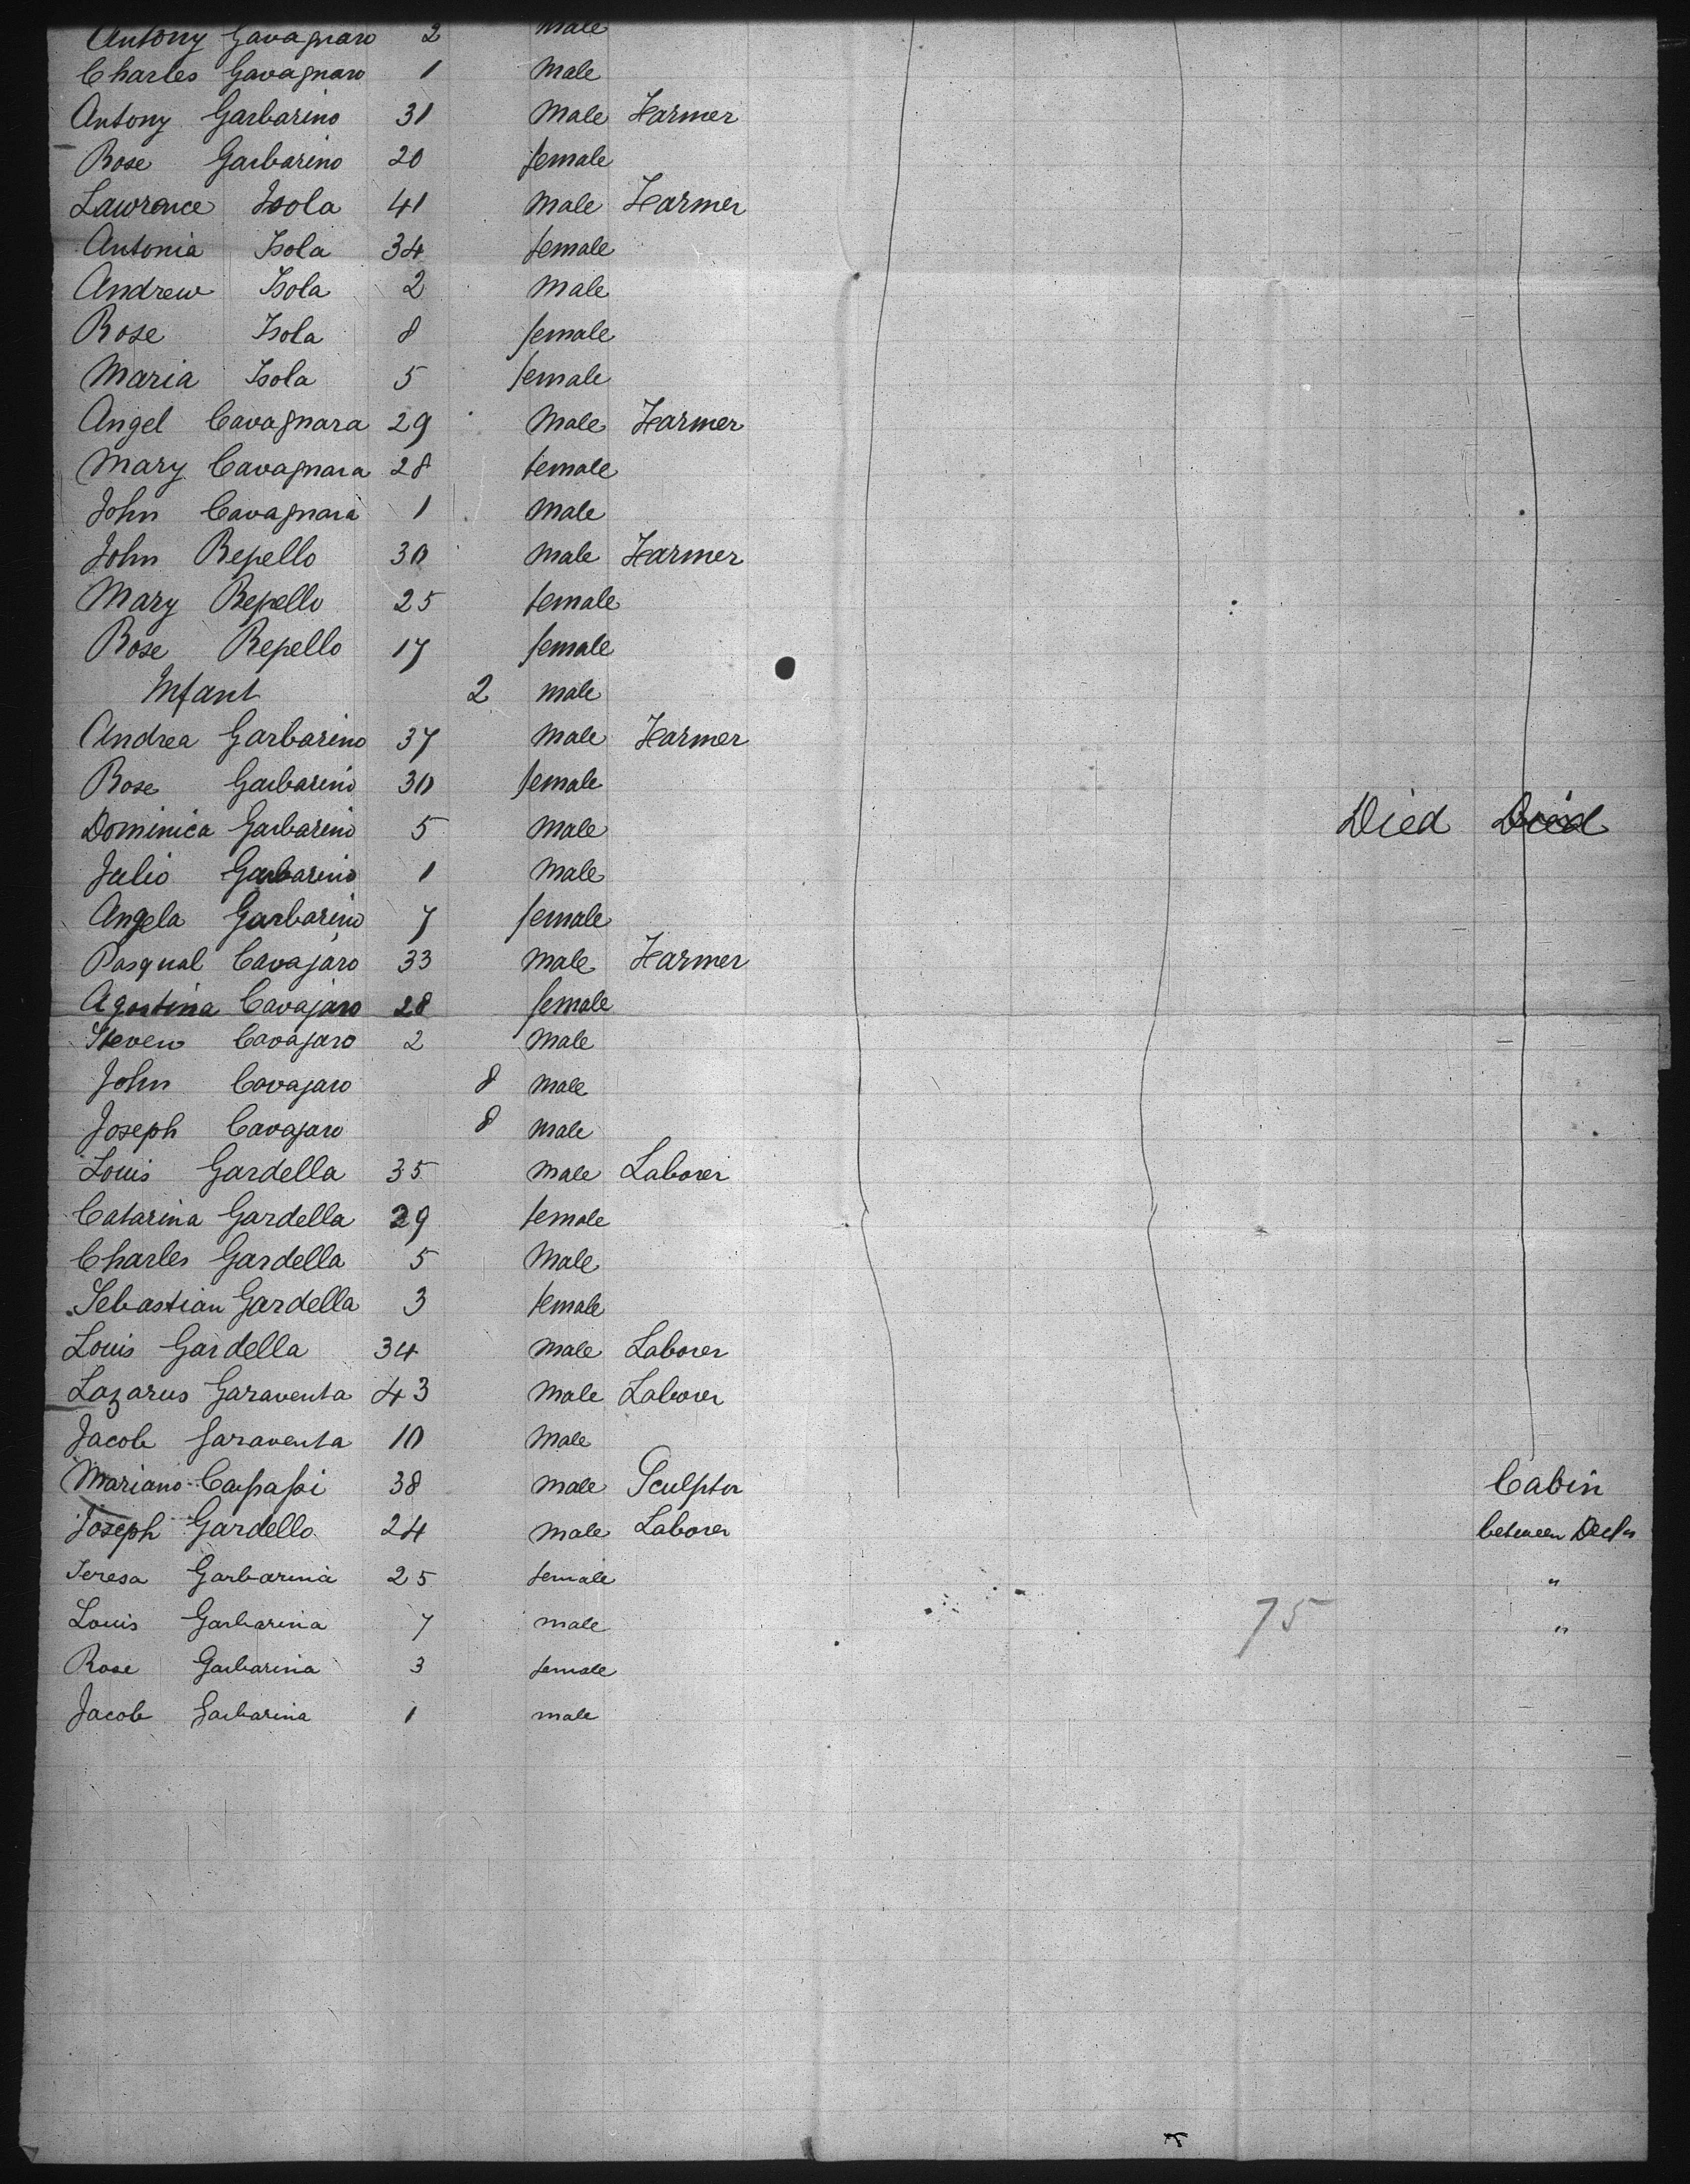 Antony Gavagnaro 2 male
Charles Gavagnaro 1 Male
Antony Garbarino 31 Male Farmer
Rose Garbarino 20 female
Lawrence Isola 41 Male Farmer
Antonia Isola 34 female
Andrew Isola 2 Male
Rose Isola 8 female
Maria Isola 5 female
Angel Cavagnara 29 Male Farmer
Mary Cavagnara 28 female
John Cavagnara 1 Male
John Repello 30 Male Farmer
Mary Repello 25 female
Rose Repello 17 female
Infant 2 male
Andrea Garbarino 37 Male Farmer
Rose Garbarino 30 female
Dominica Garbarino 5 Male Died Died
Julio Garbarino 1 Male
Angela Garbarino 7 female
Pasqual Cavajaro 33 Male Farmer
Agostina Cavajaro 28 female
Steven Cavajaro 2 Male
John Cavajaro 8 Male
Joseph Cavajaro 8 Male
Louis Gardella 35 Male Laborer
Catarina Gardella 29 female
Charles Gardella 5 Male
Sebastian Gardella 3 female
Louis Gardella 34 Male Laborer
Lazarus Garaventa 43 Male Laborer
Jacob Garaventa 10 Male
Mariano 38 Male Sculptor Cabin
Joseph Gardello 24 Male Laborer between Decks
Teresa Garbarina 25 female "
Louis Garbarina 7 male 75 "
Rose Garbarina 3 female
Jacob Garbarina 1 male